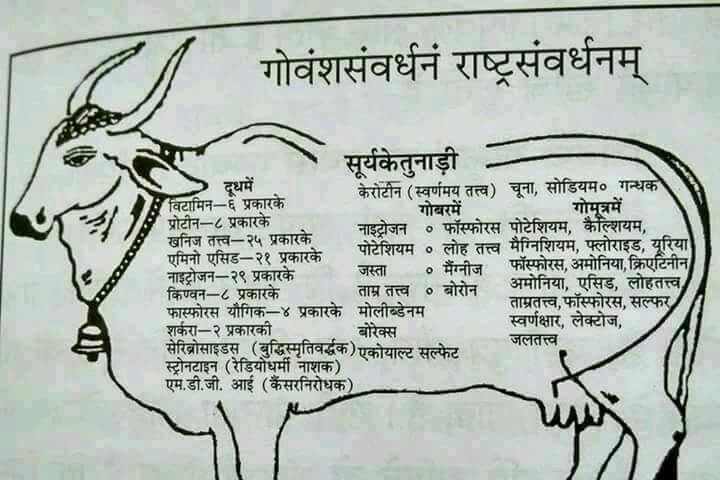 गोवंशसंवर्धनं राष्ट्रसंवर्धनम्
सूर्यकेतुनाड़ी
दूधमें
विटामिन—६ प्रकारके
प्रोटीन—८ प्रकारके
खनिज तत्त्व—२५ प्रकारके
एमिनो एसिड—२१ प्रकारके
नाइट्रोजन—२९ प्रकारके
किण्वन—८ प्रकारके
फास्फोरस यौगिक—४ प्रकारके
शर्करा—२ प्रकारकी
सेरिब्रोसाइडस (बुद्धिस्मृतिवर्द्धक)
स्ट्रोनटाइन (रेडियोधर्मी नाशक)
एम.डी.जी. आई (कैंसरनिरोधक)
केरोटीन (स्वर्णमय तत्त्व)
गोबरमें
नाइट्रोजन ० फॉस्फोरस
पोटेशियम ० लोह तत्त्व
जस्ता ० मैंग्नीज
ताम्र तत्त्व ० बोरोन
मोलीब्डेनम
बोरेक्स
एकोयाल्ट सल्फेट
चूना, सोडियम० गन्धक
गोमूत्रमें
पोटेशियम, कैल्शियम,
मैग्निशियम, फ्लोराइड, यूरिया
फॉस्फोरस, अमोनिया,क्रिएटिनीन
अमोनिया, एसिड, लोहतत्त्व,
ताम्रतत्त्व,फॉस्फोरस, सल्फर,
स्वर्णक्षार, लेक्टोज,
जलतत्त्व